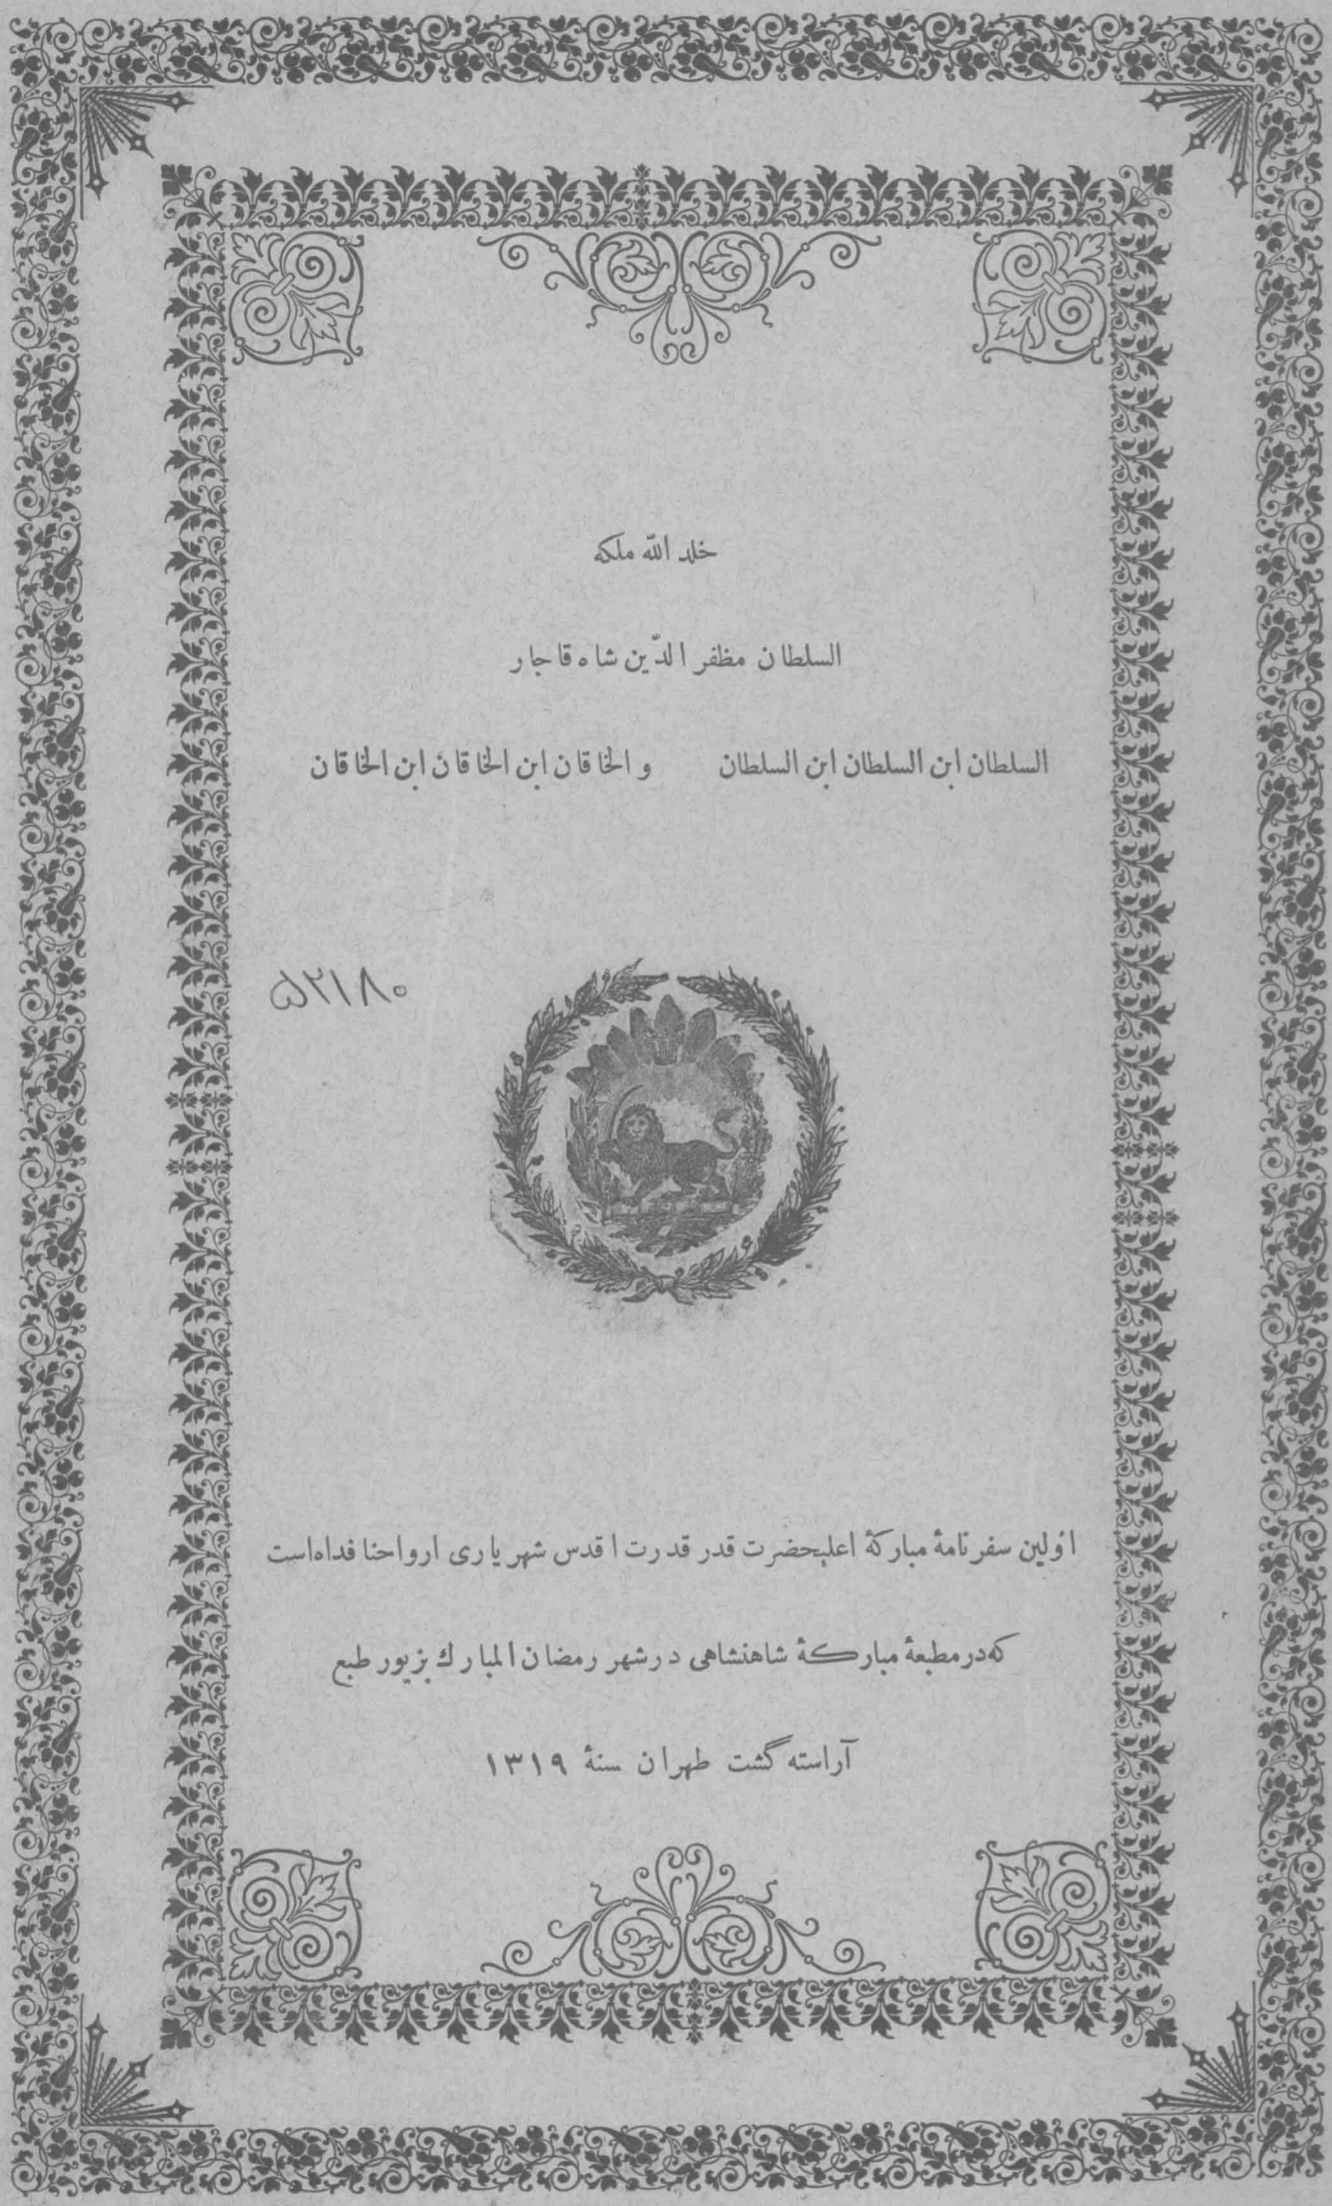 خلد الله ملکه
السلطان مظفر الدّین شاه قاجار
السلطان ابن السلطان ابن السلطان والخاقان ابن الخاقان ابن الخاقان
۵۲۱۸۰
اوّلین سفرنامهٔ مبارکهٔ اعلیحضرت قدر قدرت اقدس شهریاری ارواحنا فداه است
که در مطبعهٔ مبارکهٔ شاهنشاهی در شهر رمضان المبارك بزیور طبع
آراسته گشت طهران سنهٔ ۱۳۱۹